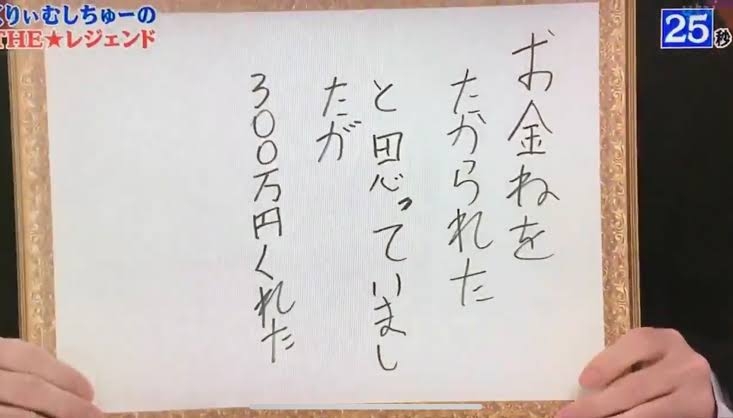 くりぃむしちゅーの
THE★レジェンド
25秒
お金ねを
たかられた
と思っていまし
たが
300万円くれた